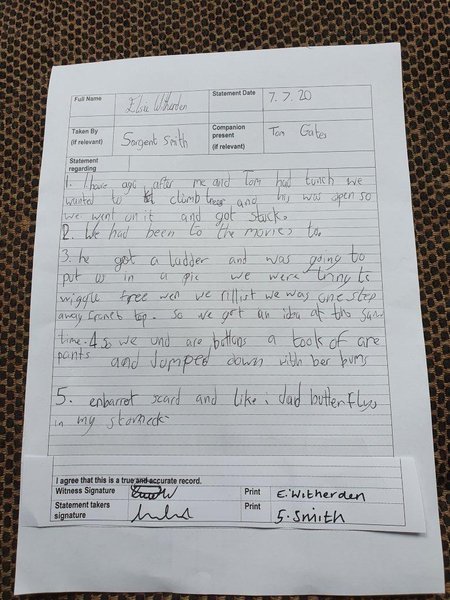 Full Name Elsie Witherden Statement Date 7.7.20
Taken By (if relevant) Sargent Smith Companion present (if relevant) Tom Gates
Statement regarding
1. 1 houre ago after me and Tom had lunch we
wanted to climb and his was open so
we went on it and got stuck.
2. We had been to the movies to.
3. he got a ladder and was going to
put us in a pie we were trying to
wiggle free wen we rillist we was one step
away from top. So we got an idea at the same
time. 4 So we und are buttons a took of are
pants and Jumped down with ber bums
5. enbarrot scard and like i dad butterflys
in my stomeck.
I agree that this is a true and accurate record.
Witness Signature Print E.Witherden
Statement takers signature Print S. Smith